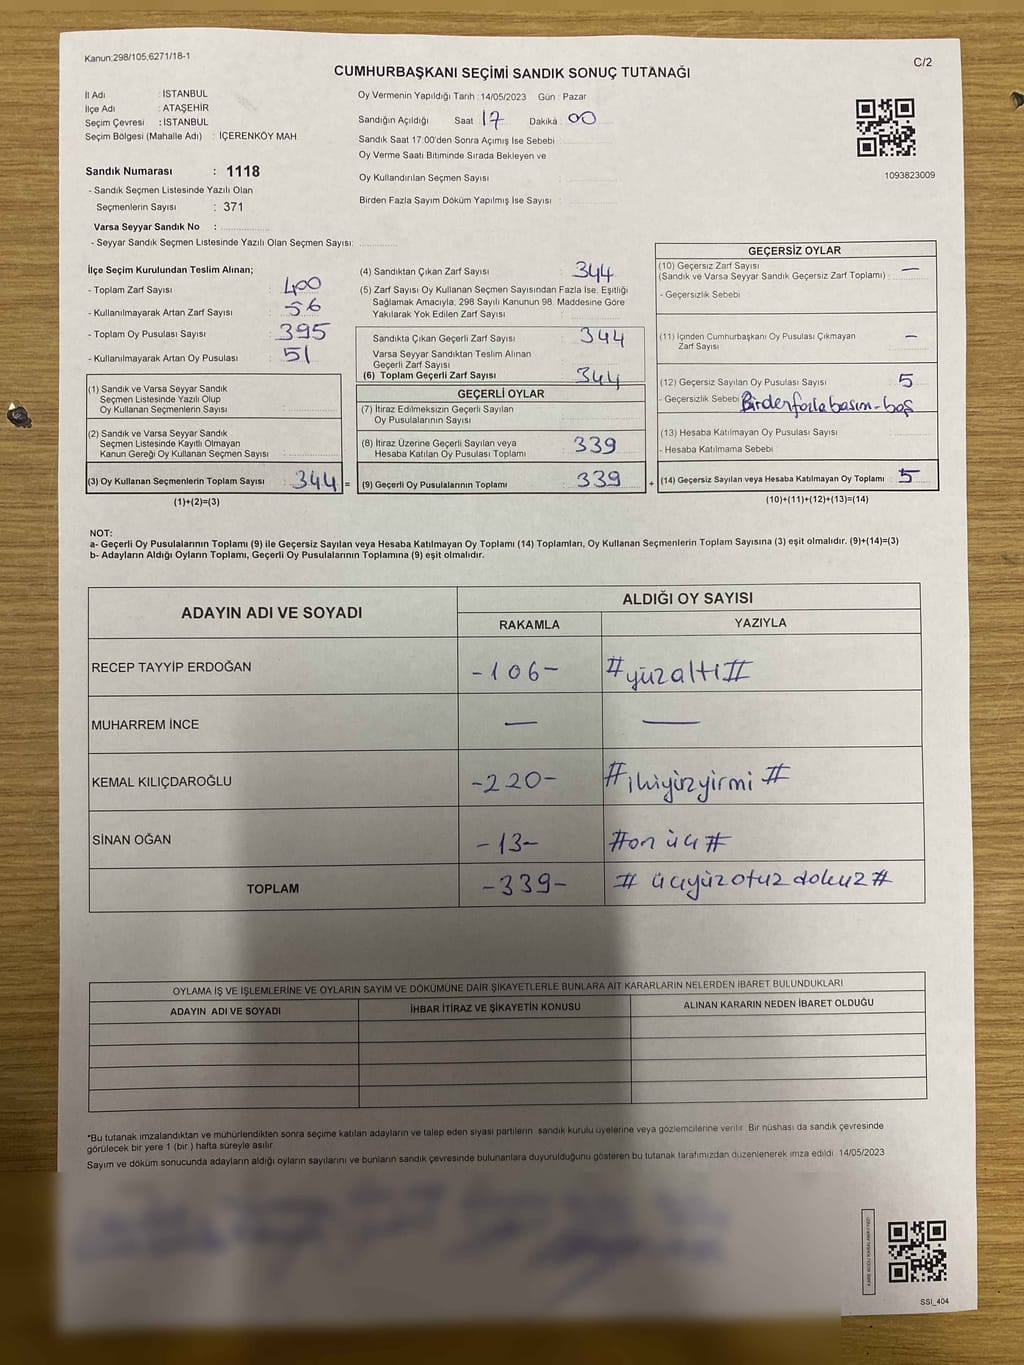 Kanun:298/105,6271/18-1
C/2
CUMHURBAŞKANI SEÇİMİ SANDIK SONUÇ TUTANAĞI
İl Adı : İSTANBUL
İlçe Adı : ATAŞEHİR
Seçim Çevresi : İSTANBUL
Seçim Bölgesi (Mahalle Adı) : İÇERENKÖY MAH.
Sandık Numarası : 1118
- Sandık Seçmen Listesinde Yazılı Olan
Seçmenlerin Sayısı : 371
Varsa Seyyar Sandık No :
- Seyyar Sandık Seçmen Listesinde Yazılı Olan Seçmen Sayısı:
Oy Vermenin Yapıldığı Tarih : 14/05/2023 Gün : Pazar
Sandığın Açıldığı Saat 17 Dakika 00
Sandık Saat 17:00'den Sonra Açımış İse Sebebi
Oy Verme Saati Bitiminde Sırada Bekleyen ve
Oy Kullandırılan Seçmen Sayısı
Birden Fazla Sayım Döküm Yapılmış İse Sayısı
1093823009
İlçe Seçim Kurulundan Teslim Alınan;
- Toplam Zarf Sayısı : 400
- Kullanılmayarak Artan Zarf Sayısı : 56
- Toplam Oy Pusulası Sayısı : 395
- Kullanılmayarak Artan Oy Pusulası : 51
(1) Sandık ve Varsa Seyyar Sandık
Seçmen Listesinde Yazılı Olup
Oy Kullanan Seçmenlerin Sayısı
(2) Sandık ve Varsa Seyyar Sandık
Seçmen Listesinde Kayıtlı Olmayan
Kanun Gereği Oy Kullanan Seçmen Sayısı
(3) Oy Kullanan Seçmenlerin Toplam Sayısı : 344 =
(1)+(2)=(3)
(4) Sandıktan Çıkan Zarf Sayısı : 344
(5) Zarf Sayısı Oy Kullanan Seçmen Sayısından Fazla İse, Eşitliği
Sağlamak Amacıyla; 298 Sayılı Kanunun 98. Maddesine Göre
Yakılarak Yok Edilen Zarf Sayısı
Sandıkta Çıkan Geçerli Zarf Sayısı : 344
Varsa Seyyar Sandıktan Teslim Alınan
Geçerli Zarf Sayısı
(6) Toplam Geçerli Zarf Sayısı : 344
GEÇERLİ OYLAR
(7) İtiraz Edilmeksizin Geçerli Sayılan
Oy Pusulalarının Sayısı
(8) İtiraz Üzerine Geçerli Sayılan veya
Hesaba Katılan Oy Pusulası Toplamı : 339
(9) Geçerli Oy Pusulalarının Toplamı : 339 +
GEÇERSİZ OYLAR
(10) Geçersiz Zarf Sayısı
(Sandık ve Varsa Seyyar Sandık Geçersiz Zarf Toplamı) : —
- Geçersizlik Sebebi
(11) İçinden Cumhurbaşkanı Oy Pusulası Çıkmayan
Zarf Sayısı : —
(12) Geçersiz Sayılan Oy Pusulası Sayısı : 5
- Geçersizlik Sebebi Birden fazla basım-boş
(13) Hesaba Katılmayan Oy Pusulası Sayısı
- Hesaba Katılmama Sebebi
(14) Geçersiz Sayılan veya Hesaba Katılmayan Oy Toplamı : 5
(10)+(11)+(12)+(13)=(14)
NOT:
a- Geçerli Oy Pusulalarının Toplamı (9) ile Geçersiz Sayılan veya Hesaba Katılmayan Oy Toplamı (14) Toplamları, Oy Kullanan Seçmenlerin Toplam Sayısına (3) eşit olmalıdır. (9)+(14)=(3)
b- Adayların Aldığı Oyların Toplamı, Geçerli Oy Pusulalarının Toplamına (9) eşit olmalıdır.
ADAYIN ADI VE SOYADI
ALDIĞI OY SAYISI
RAKAMLA YAZIYLA
RECEP TAYYİP ERDOĞAN -106- #yüzaltı#
MUHARREM İNCE — —
KEMAL KILIÇDAROĞLU -220- #ikiyüzyirmi#
SİNAN OĞAN -13- #on üç#
TOPLAM -339- # üçyüzotuz dokuz#
OYLAMA İŞ VE İŞLEMLERİNE VE OYLARIN SAYIM VE DÖKÜMÜNE DAİR ŞİKAYETLERLE BUNLARA AİT KARARLARIN NELERDEN İBARET BULUNDUKLARI
ADAYIN ADI VE SOYADI İHBAR İTİRAZ VE ŞİKAYETİN KONUSU ALINAN KARARIN NEDEN İBARET OLDUĞU
*Bu tutanak imzalandıktan ve mühürlendikten sonra seçime katılan adayların ve talep eden siyasi partilerin sandık kurulu üyelerine veya gözlemcilerine verilir. Bir nüshası da sandık çevresinde
görülecek bir yere 1 (bir ) hafta süreyle asılır.
Sayım ve döküm sonucunda adayların aldığı oyların sayılarını ve bunların sandık çevresinde bulunanlara duyurulduğunu gösteren bu tutanak tarafımızdan düzenlenerek imza edildi. 14/05/2023
SSI_404